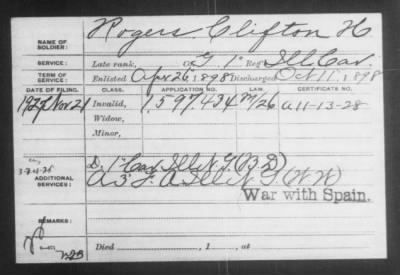 NAME OF SOLDIER: Rogers Clifton H
SERVICE: Late rank, Co. G, 1" Reg't Ill. Cav.
TERM OF SERVICE: Enlisted Apr 26, 1898 Discharged Oct 11, 1898
DATE OF FILING. CLASS. APPLICATION NO. LAW. CERTIFICATE NO.
1927 Nov 21 Invalid, 1,597,434 a 11-13-28
Widow,
Minor,
ADDITIONAL SERVICES:
War with Spain.
REMARKS:
Died , 1 , at